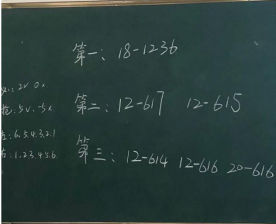 第一：18-1236
第二：12-617 12-615
第三：12-614 12-616 20-616
左：6.5.4.3.2.1
右：1.2.3.4.5.6